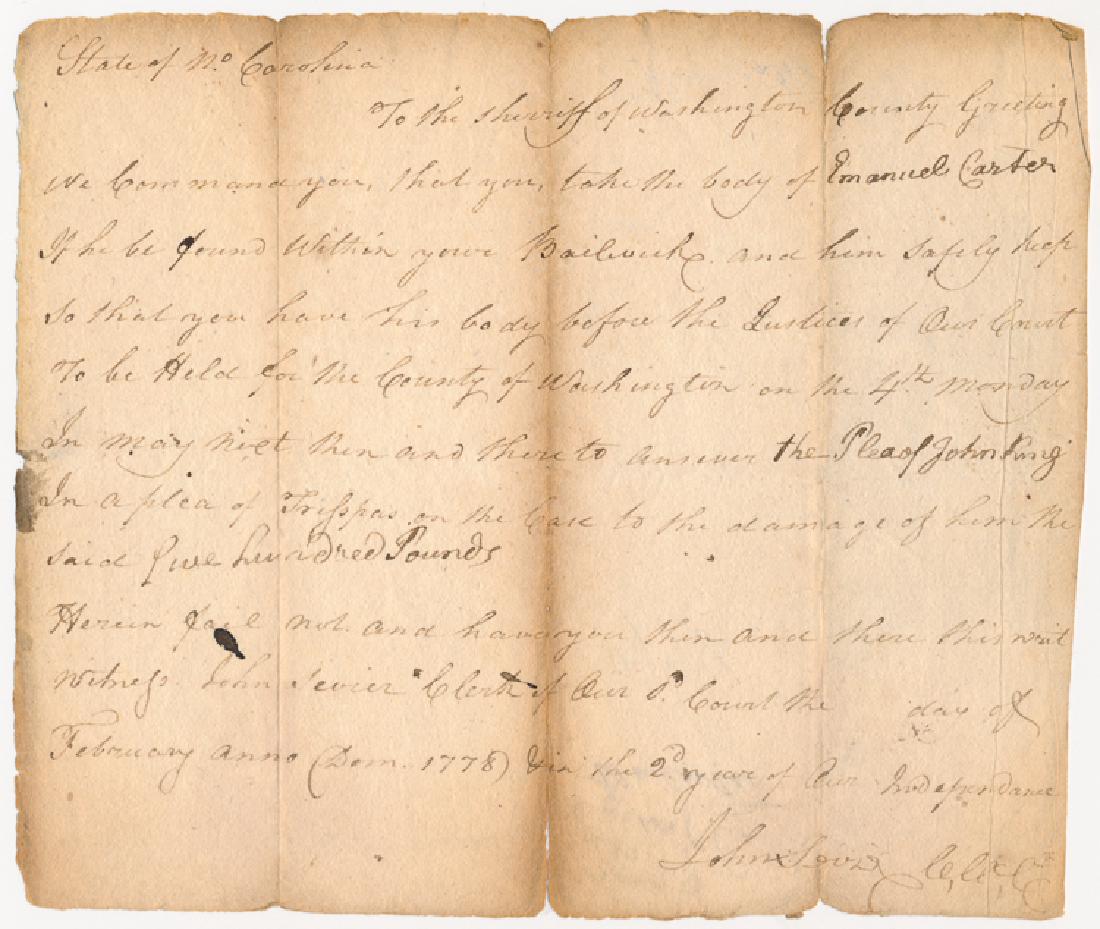 State of No Carolina
To the sherriff of Washington County Greeting
we Command you, that you, take the body of Emanuel Carter
If he be found Within youre Bailwick and him safely keep
so that you have his body before the Justices of Our Court
To be Held for the County of Washington on the 4th monday
In may next then and there to answer the Plea of John King
In a plea of Trispas on the Case to the damage of him the
said five hundred Pounds
Herein fail not and have you then and there this writ
witness John Sevier Clerk of Our sd. Court the day of
February anno (Dom 1778) & in the 2d year of Our Independance
John Sevier C. W. C